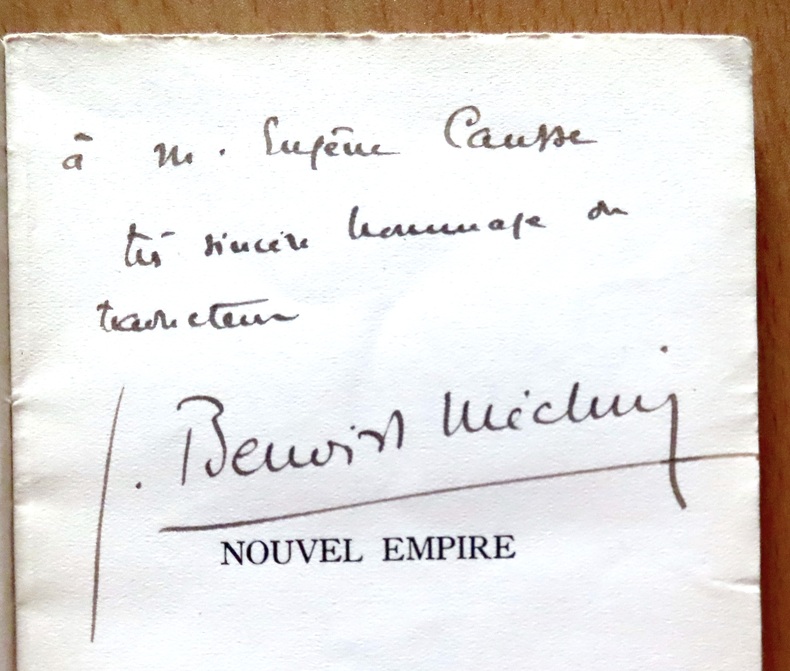 à M. Eugène Causse
très sincère hommage du
traducteur
J. Benoist Méchin
NOUVEL EMPIRE